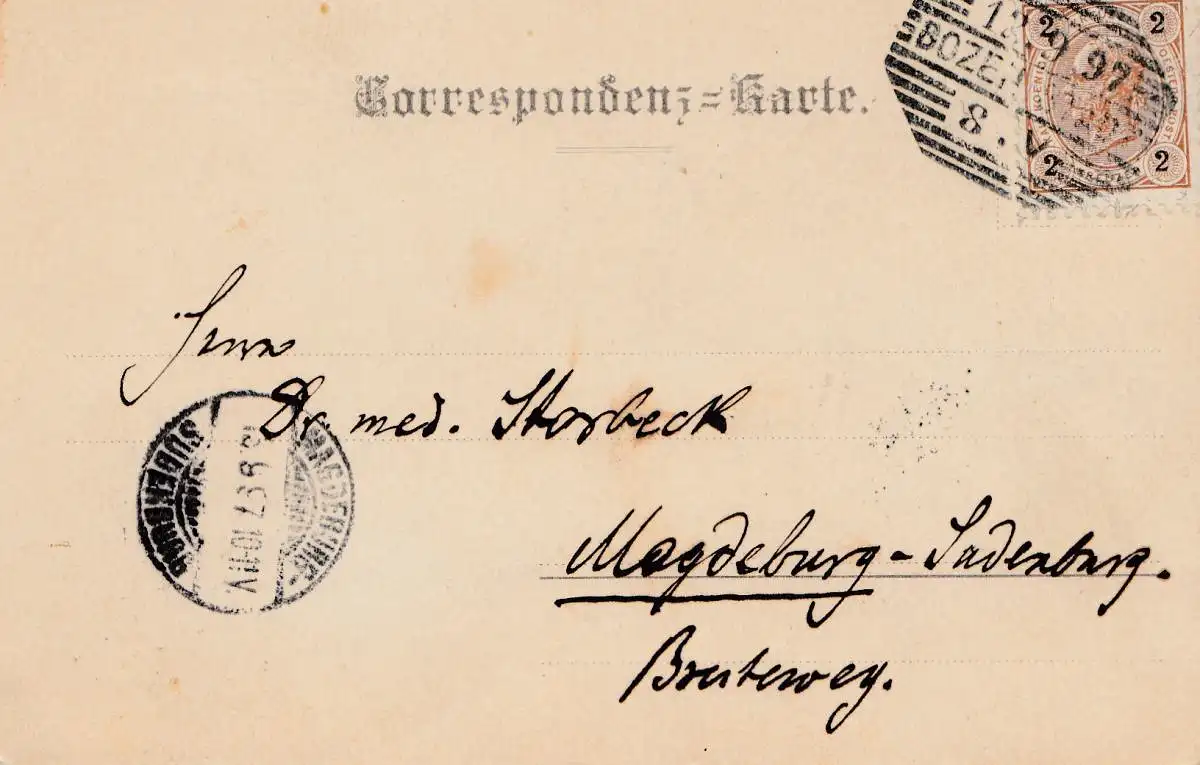 Correspondenz=Karte.
12 9 97
BOZEN
8. V
2 2
2 2
Herrn
Dr med. Storbeck
MAGDEBURG-
SUDENBURG
13.9.97.10-11V
Magdeburg-Sudenburg.
Breiteweg.